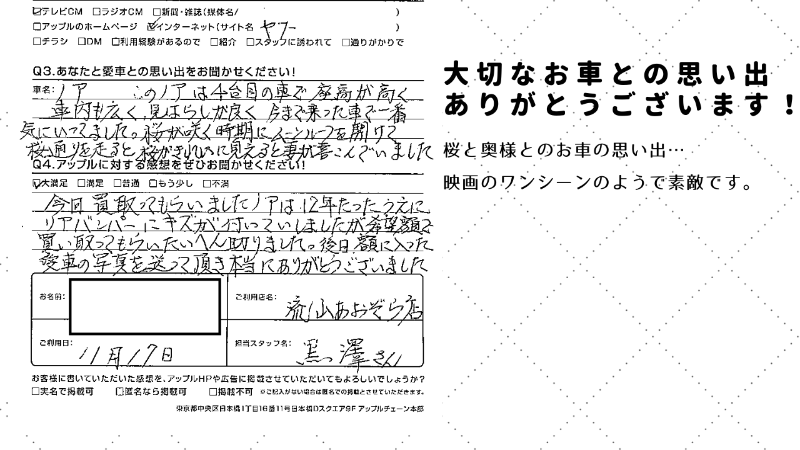 ☑テレビCM □ラジオCM □新聞・雑誌(媒体名/ )
□アップルのホームページ ☑インターネット(サイト名 ヤフー )
□チラシ □DM □利用経験があるので □紹介 □スタッフに誘われて □通りがかりで
Q3.あなたと愛車との思い出をお聞かせください!
車名:ノア このノアは4台目の車で座高が高く
車内も広く、見はらしが良く 今まで乗った車で一番
気にいってました。桜が咲く時期にムーンルーフを開けて
桜通りを走ると桜がきれいに見えると妻が喜こんでいました
Q4.アップルに対する感想をぜひお聞かせください!
☑大満足 □満足 □普通 □もう少し □不満
今回買取ってもらいましたノアは12年たったうえに
リアバンパーにキズが付っていしましたが希望額で
買い取ってもらいたいへん助りました。後日額に入った
愛車の写真を送って頂き本当にありがとうございました
お名前:
ご利用店名: 流山あおぞら店
ご利用日: 11月17日
担当スタッフ名: 黒澤さん
お客様に書いていただいた感想を、アップルHPや広告に掲載させていただいてもよろしいでしょうか?
□実名で掲載可 ☑匿名なら掲載可 □掲載不可 ※ご記入がない場合は匿名での掲載とさせていただきます。
東京都中央区日本橋1丁目16番11号日本橋Dスクエア9F アップルチェーン本部
大切なお車との思い出
ありがとうございます!
桜と奥様とのお車の思い出…
映画のワンシーンのようで素敵です。